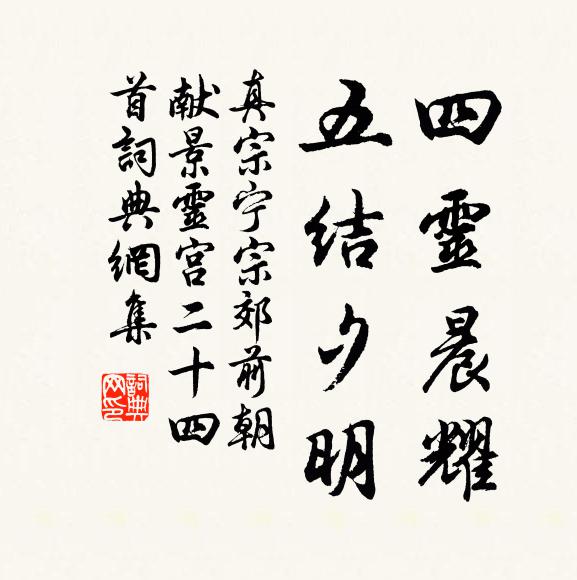 四靈晨耀
五結夕明
真宗宁宗郊前朝
献景靈宮二十四
首詞典網集
詞典网印